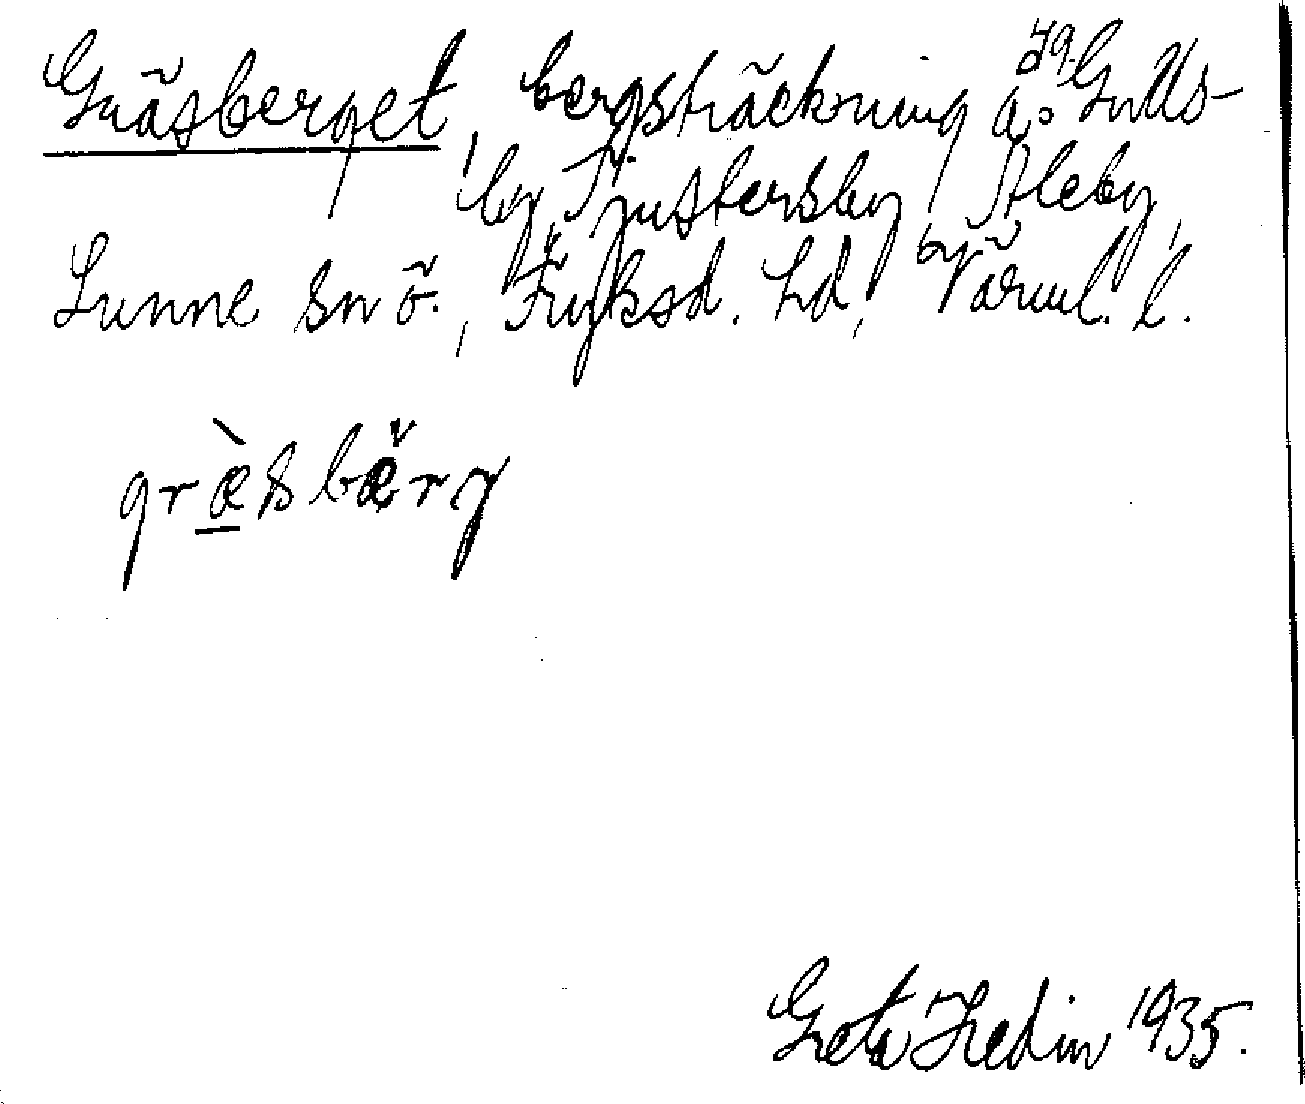 Gräsberget, bergsträckning å äg. Gulls-
by, Tjustersby, Åleby,
Sunne sn ö., Fryksd. hd, Värml. l.
græ̀sbærg
Greta Hedin 1935.